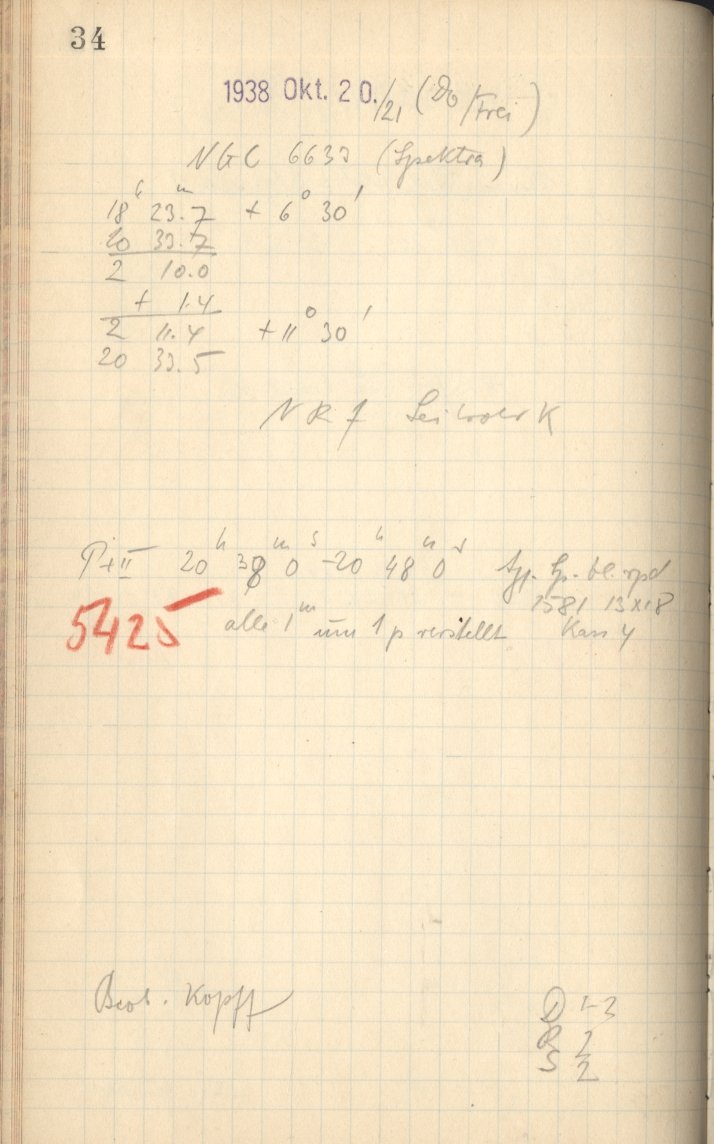 34
1938 Okt. 20./21 (Do/Frei)
NGC 6633 (Spektra)
18h 23m.7 + 6° 30'
20 33.7
2 10.0
+ 1.4
2 11.4 + 11° 30'
20 33.5
P I+II 20h 38m 0s - 20h 48m 0s
1581 13x18
5425 alle 1m um 1p verstellt Kass 4
Beob. Kopff
D 1-3
R 2
S 2